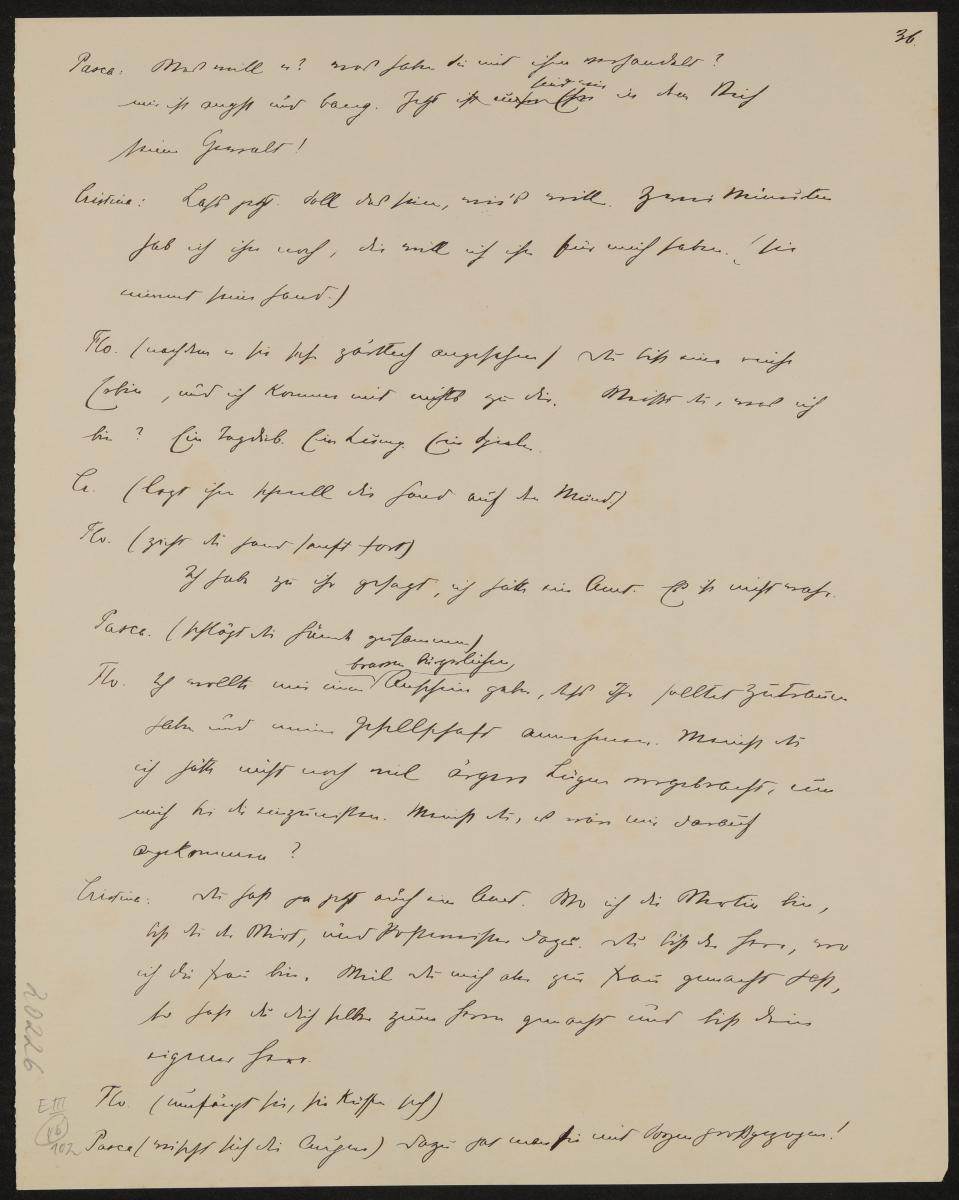 36.
Pasca: Was will er? was habe Sie mit ihm verhandelt?
mir ist angst und bang. Jetzt sind wir in dem Reich
seine Gewalt!
Cristina: Lass jetzt. Soll das sein, wie's will. Zwei Minuten
hab ich ihn noch, die will ich ihn für mich haben. (sie
nimmt seine Hand.)
Flo. (nachdem er sie sehr zärtlich angesehen) Du bist eine reiche
Erbin, und ich komme mit nichts zu dir. Weisst du, was ich
bin? Ein Tagdieb. Ein Lump. Ein Spieler.
Cr. (legt ihm schnell die Hand auf den Mund)
Flo. (zieht die Hand sanft fort)
Ich habe zu ihr gesagt, ich hätte ein Amt. Es ist nicht wahr.
Pasca. (schlägt die Hände zusammen)
braven bürgerlichen
Flo. Ich wollte mir einen Anschein geben, dass Ihr solltet Zutrauen
haben und meine Gesellschaft annehmen. Meinst du
ich hätte nicht noch viel ärgere Lügen vorgebracht, um
mich bei dir einzunisten. Meinst du, es wäre mir darauf
angekommen?
Cristina: Du hast ja jetzt auch ein Amt. Wo ich die Wirtin bin,
bist du der Wirt, und Postmeister dazu. Du bist der Herr, wo
ich die Frau bin. Weil du mich aber zur Frau gemacht hast,
so hast du dich selber zum Herrn gemacht und bist dein
eigener Herr.
Flo. (umfängt sie, sie küssen sich)
Pasca (wischt sich die Augen) Dazu hat man sie mit Sorgen grossgezogen!
20226
E III
76
102